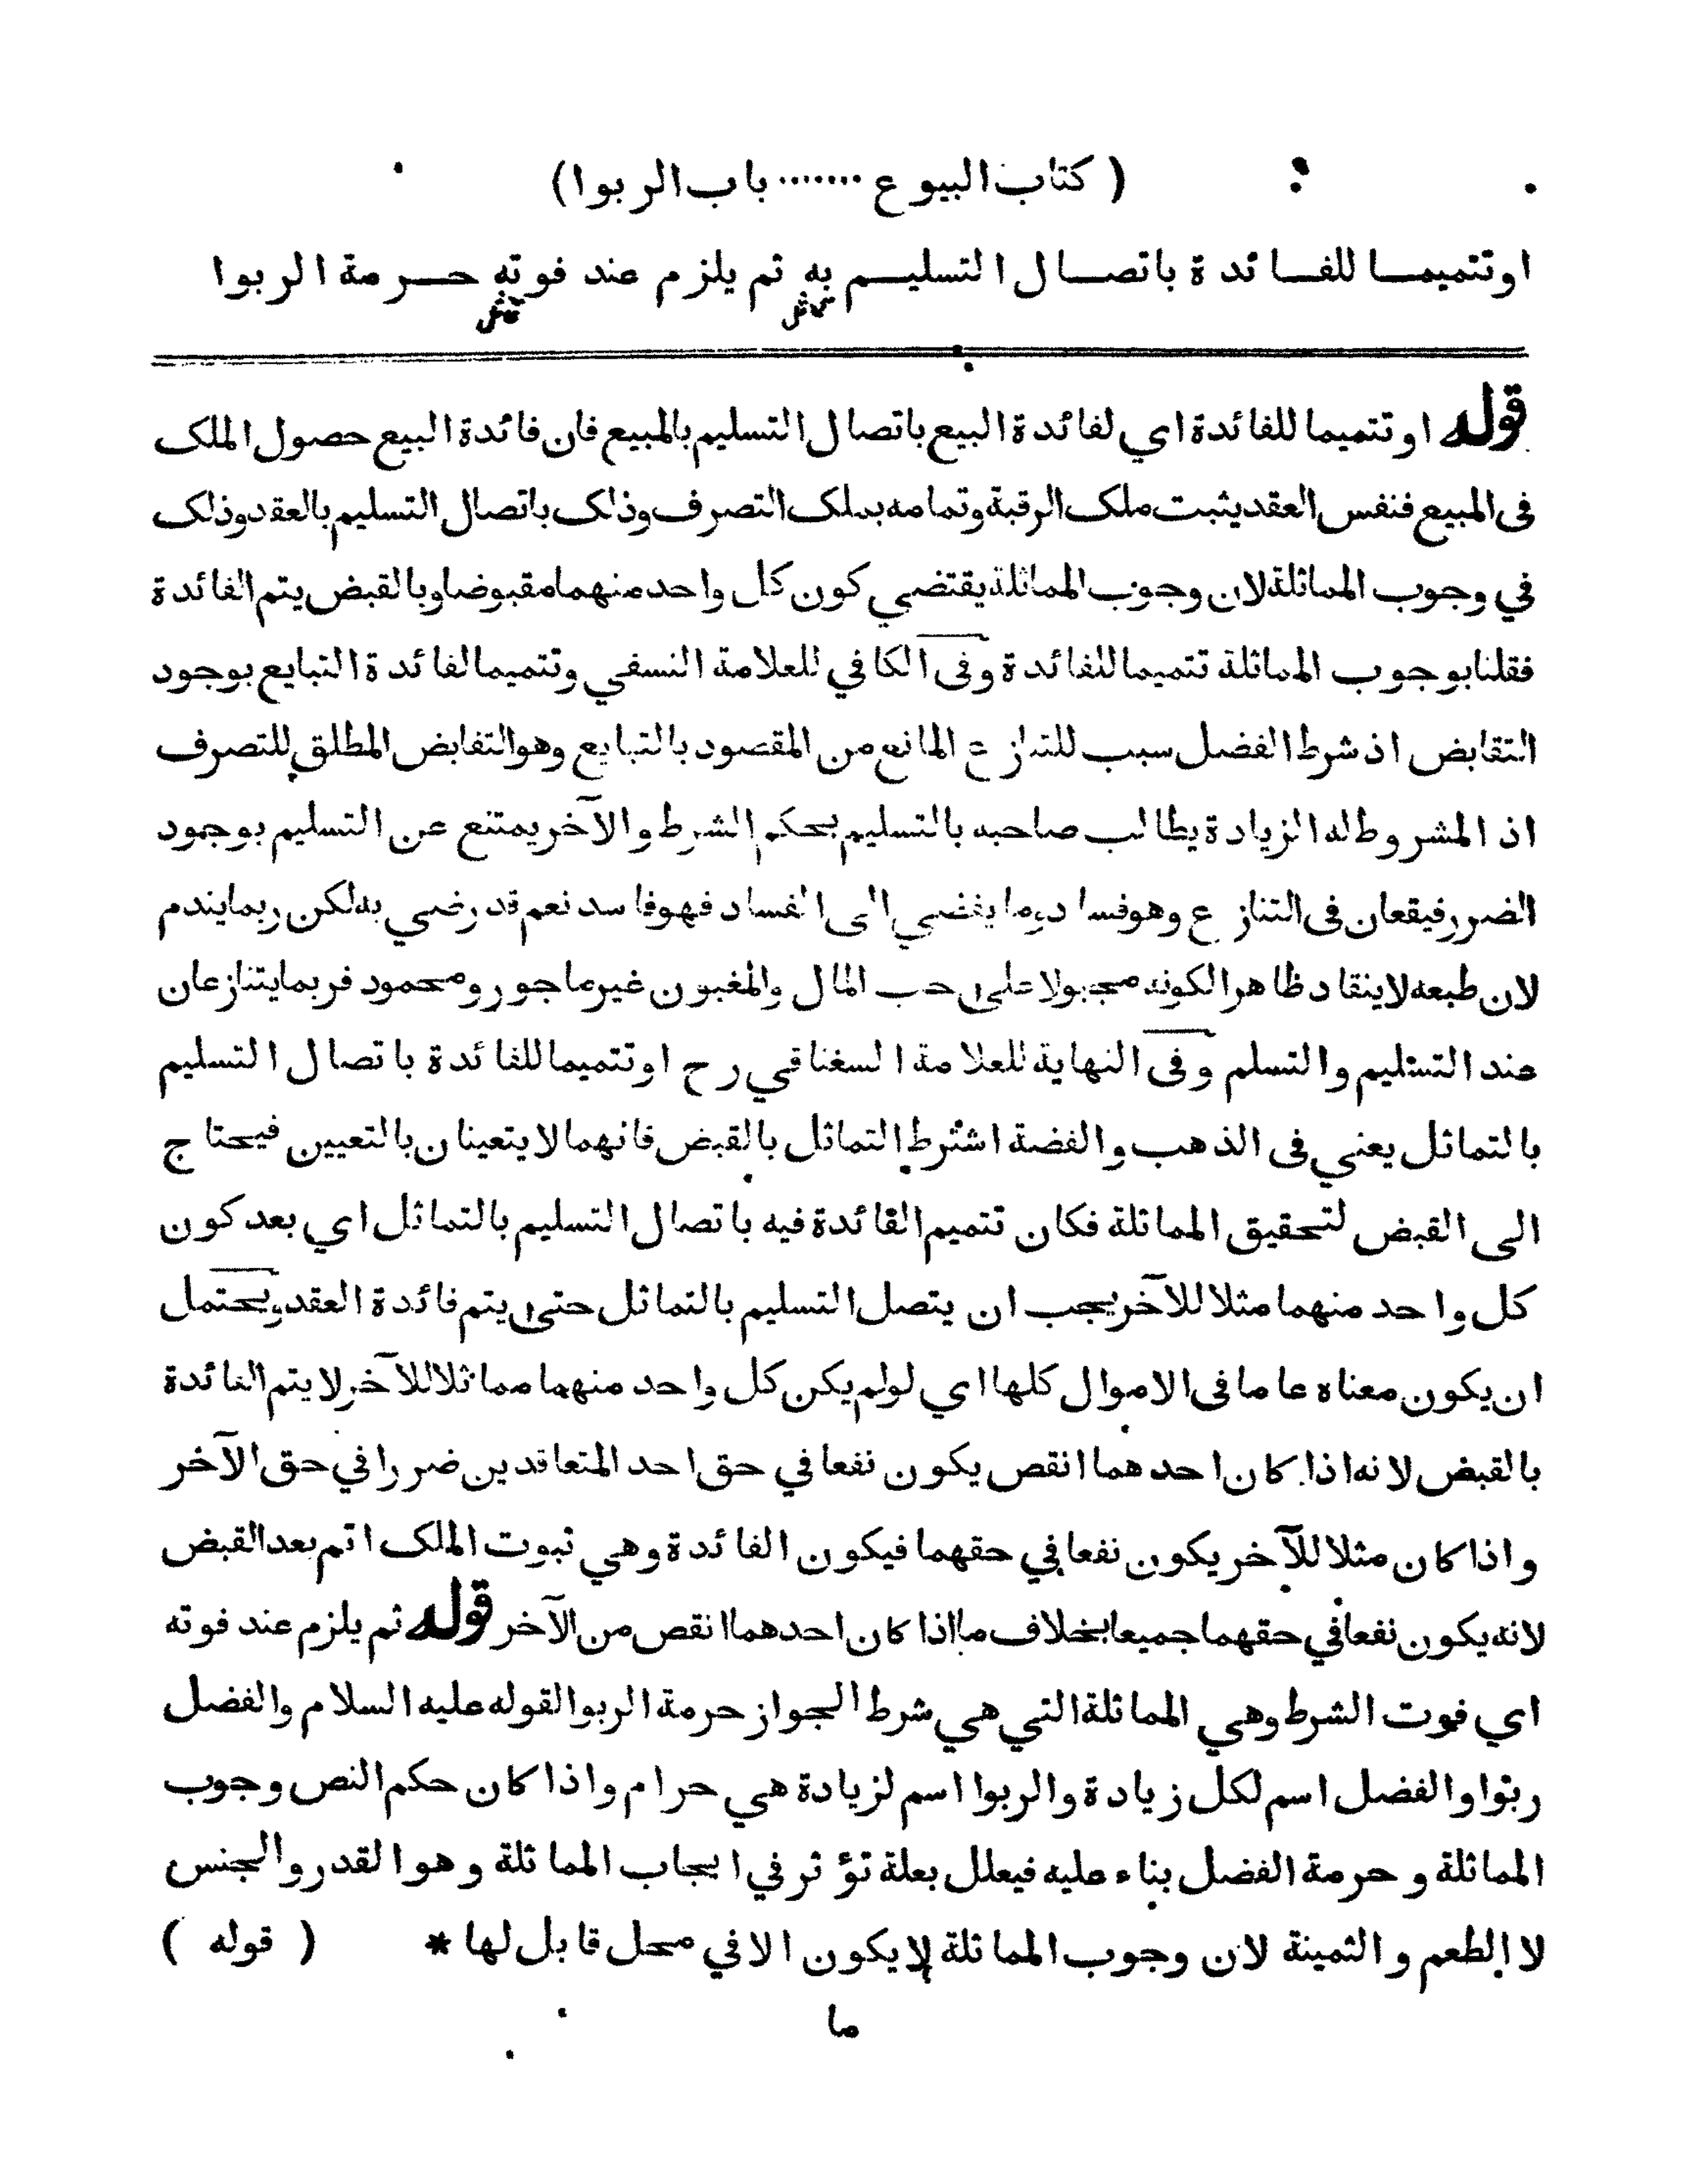 ( كتاب البيوع ······· باب الربوا )
او تتميما للفائدة باتصال التسليم به ثم يلزم عند فوته حرمة الربوا
قوله او تتميما للفائدة اي لفائدة البيع باتصال التسليم بالمبيع فان فائدة البيع حصول الملك
فى المبيع فنفس العقد يثبت ملك الرقبة وتمامه بملك التصرف وذلك باتصال التسليم بالعقد وذلك
في وجوب المماثلة لان وجوب المماثلة يقتضي كون كل واحد منهما مقبوضا وبالقبض يتم الفائدة
فقلنا بوجوب المماثلة تتميما للفائدة وفى الكافي للعلامة النسفي وتتميما لفائدة التبايع بوجود
التقابض اذ شرط الفضل سبب للتنازع المانع من المقصود بالتبايع وهو التقابض المطلق للتصرف
اذ المشروط له الزيادة يطالب صاحبه بالتسليم بحكم الشرط والآخر يمتنع عن التسليم بوجود
الضرر فيقعان فى التنازع وهو فساد وما يفضي الى الفساد فهو فاسد نعم قد رضي به لكن ربما يندم
لان طبعه لا ينقاد ظاهرا لكونه مجبولا على حب المال والمغبون غير ماجور ومحمود فربما يتنازعان
عند التسليم والتسلم وفى النهاية للعلامة السغناقي رح او تتميما للفائدة باتصال التسليم
بالتماثل يعني فى الذهب والفضة اشترط التماثل بالقبض فانهما لا يتعينان بالتعيين فيحتاج
الى القبض لتحقيق المماثلة فكان تتميم الفائدة فيه باتصال التسليم بالتماثل اي بعد كون
كل واحد منهما مثلا للآخر يجب ان يتصل التسليم بالتماثل حتى يتم فائدة العقد ويحتمل
ان يكون معناه عاما فى الاموال كلها اي لو لم يكن كل واحد منهما مماثلا للآخر لا يتم الفائدة
بالقبض لانه اذا كان احدهما انقص يكون نفعا في حق احد المتعاقدين ضررا في حق الآخر
واذا كان مثلا للآخر يكون نفعا في حقهما فيكون الفائدة وهي ثبوت الملك اتم بعد القبض
لانه يكون نفعا في حقهما جميعا بخلاف ما اذا كان احدهما انقص من الآخر قوله ثم يلزم عند فوته
اي فوت الشرط وهي المماثلة التي هي شرط الجواز حرمة الربوا لقوله عليه السلام والفضل
ربوا والفضل اسم لكل زيادة والربوا اسم لزيادة هي حرام واذا كان حكم النص وجوب
المماثلة وحرمة الفضل بناء عليه فيعلل بعلة تؤثر في ايجاب المماثلة وهو القدر والجنس
لا الطعم والثمينة لان وجوب المماثلة لا يكون الا في محل قابل لها * ( قوله )
ما